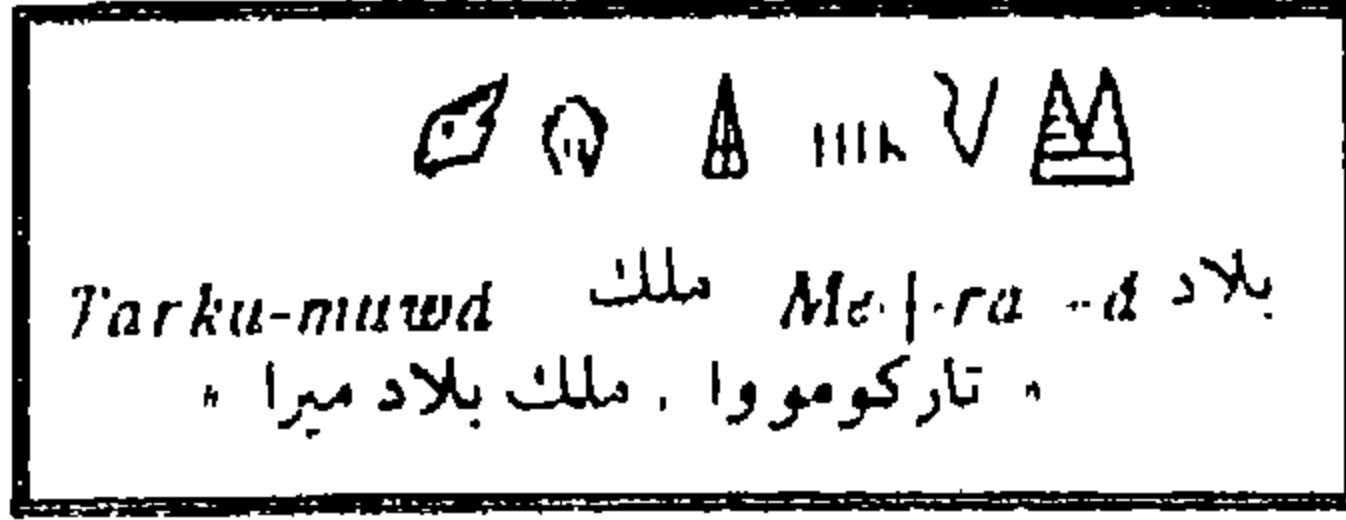 Tarku-muwd ملك Me-|-ra -d بلاد
« تاركومووا ، ملك بلاد ميرا »